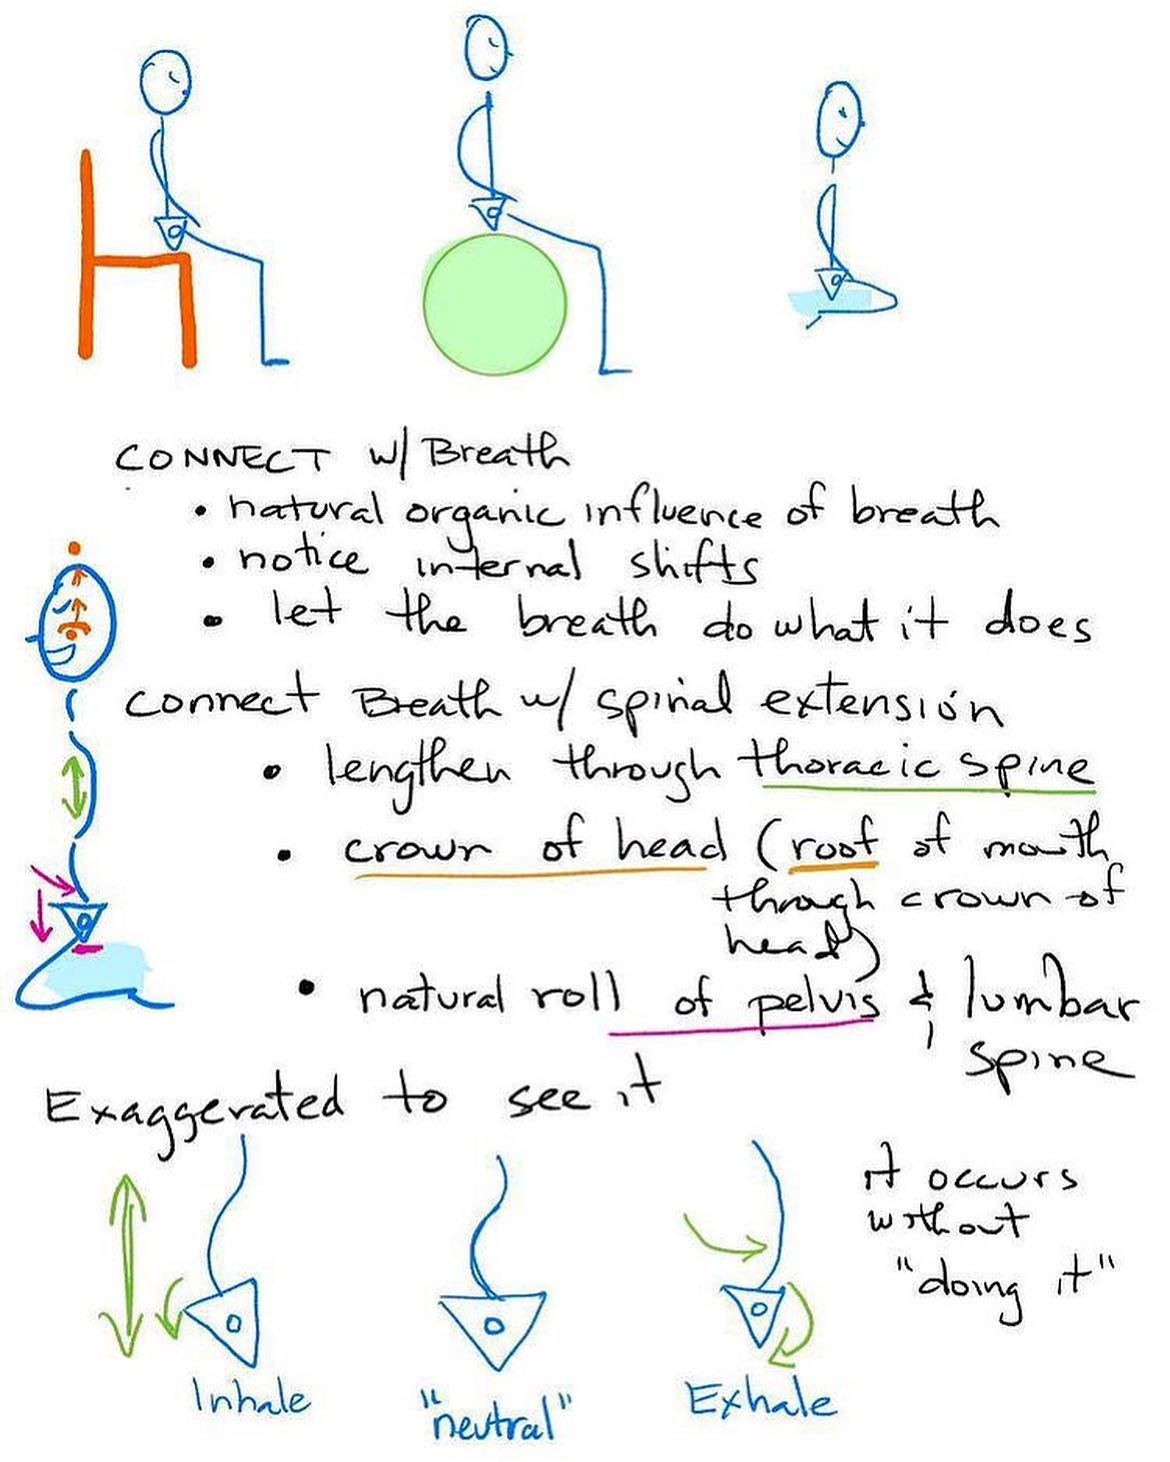 CONNECT w/ Breath
• natural organic influence of breath
• notice internal shifts
• let the breath do what it does
Connect Breath w/ spinal extension
• lengthen through thoracic spine
• crown of head (roof of mouth
through crown of
head)
• natural roll of pelvis & lumbar
spine
Exaggerated to see it
it occurs
without
"doing it"
Inhale
"neutral"
Exhale